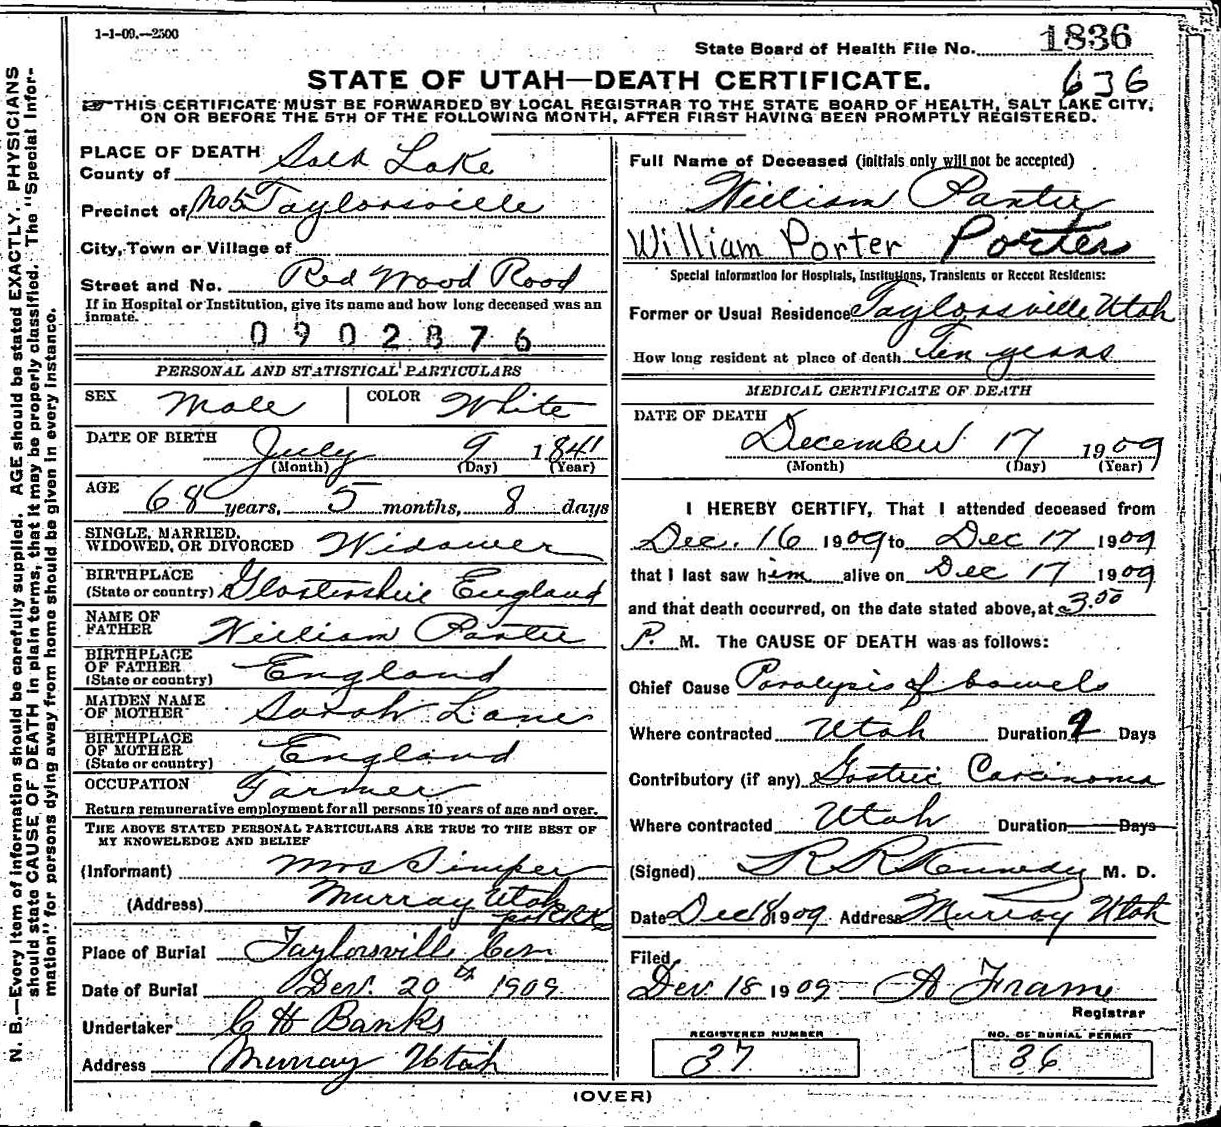 1-1-09.—2500
State Board of Health File No. 1836
STATE OF UTAH—DEATH CERTIFICATE.
636
THIS CERTIFICATE MUST BE FORWARDED BY LOCAL REGISTRAR TO THE STATE BOARD OF HEALTH, SALT LAKE CITY,
ON OR BEFORE THE 5TH OF THE FOLLOWING MONTH, AFTER FIRST HAVING BEEN PROMPTLY REGISTERED.
PLACE OF DEATH
County of Salt Lake
Precinct of No 5 Taylorsville
City, Town or Village of
Street and No. Red Wood Road
If in Hospital or Institution, give its name and how long deceased was an
inmate.
0902876
PERSONAL AND STATISTICAL PARTICULARS
SEX Male COLOR White
DATE OF BIRTH July 9 1841
(Month) (Day) (Year)
AGE 68 years, 5 months, 8 days
SINGLE, MARRIED,
WIDOWED, OR DIVORCED Widower
BIRTHPLACE
(State or country) Glostershire England
NAME OF
FATHER William Panter
BIRTHPLACE
OF FATHER
(State or country) England
MAIDEN NAME
OF MOTHER Sarah Lane
BIRTHPLACE
OF MOTHER
(State or country) England
OCCUPATION Farmer
Return remunerative employment for all persons 10 years of age and over.
THE ABOVE STATED PERSONAL PARTICULARS ARE TRUE TO THE BEST OF
MY KNOWLEDGE AND BELIEF
(Informant) Mrs Simper
(Address) Murray Utah
per RRK
Place of Burial Taylorsville Cem
Date of Burial Dec. 20th 1909
Undertaker C H Banks
Address Murray Utah
Full Name of Deceased (initials only will not be accepted)
William Panter
William Porter Porter
Special Information for Hospitals, Institutions, Transients or Recent Residents:
Former or Usual Residence Taylorsville Utah
How long resident at place of death Ten years
MEDICAL CERTIFICATE OF DEATH
DATE OF DEATH
December 17 1909
(Month) (Day) (Year)
I HEREBY CERTIFY, That I attended deceased from
Dec. 16 1909 to Dec 17 1909
that I last saw him alive on Dec 17 1909
and that death occurred, on the date stated above, at 3.00
P. M. The CAUSE OF DEATH was as follows:
Chief Cause Paralysis of bowels
Where contracted Utah Duration 2 Days
Contributory (if any) Gastric Carcinoma
Where contracted Utah Duration Days
(Signed) R R Kennedy M. D.
Date Dec 18 1909 Address Murray Utah
Filed
Dec. 18 1909 A Frame
Registrar
REGISTERED NUMBER
37
NO. OF BURIAL PERMIT
36
(OVER)
N. B.—Every item of information should be carefully supplied. AGE should be stated EXACTLY. PHYSICIANS
should state CAUSE OF DEATH in plain terms, that it may be properly classified. The "Special Infor-
mation" for persons dying away from home should be given in every instance.